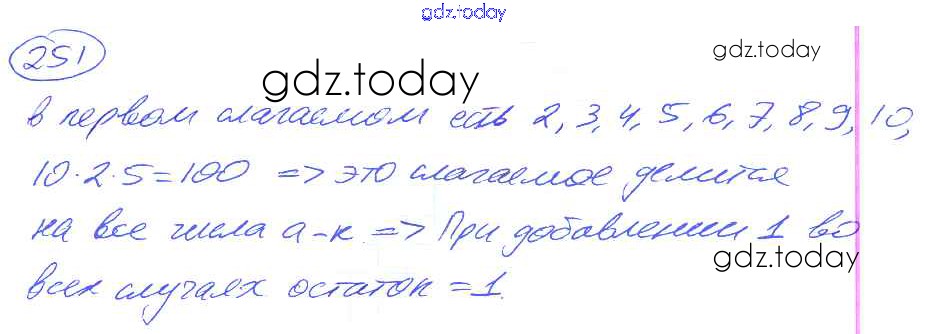 gdz.today
251
gdz.today
gdz.today
в первом слагаемом есть 2, 3, 4, 5, 6, 7, 8, 9, 10,
10·2·5=100 => это слагаемое делится
на все числа а-к => При добавлении 1 во
gdz.today
всех случаях остаток =1.